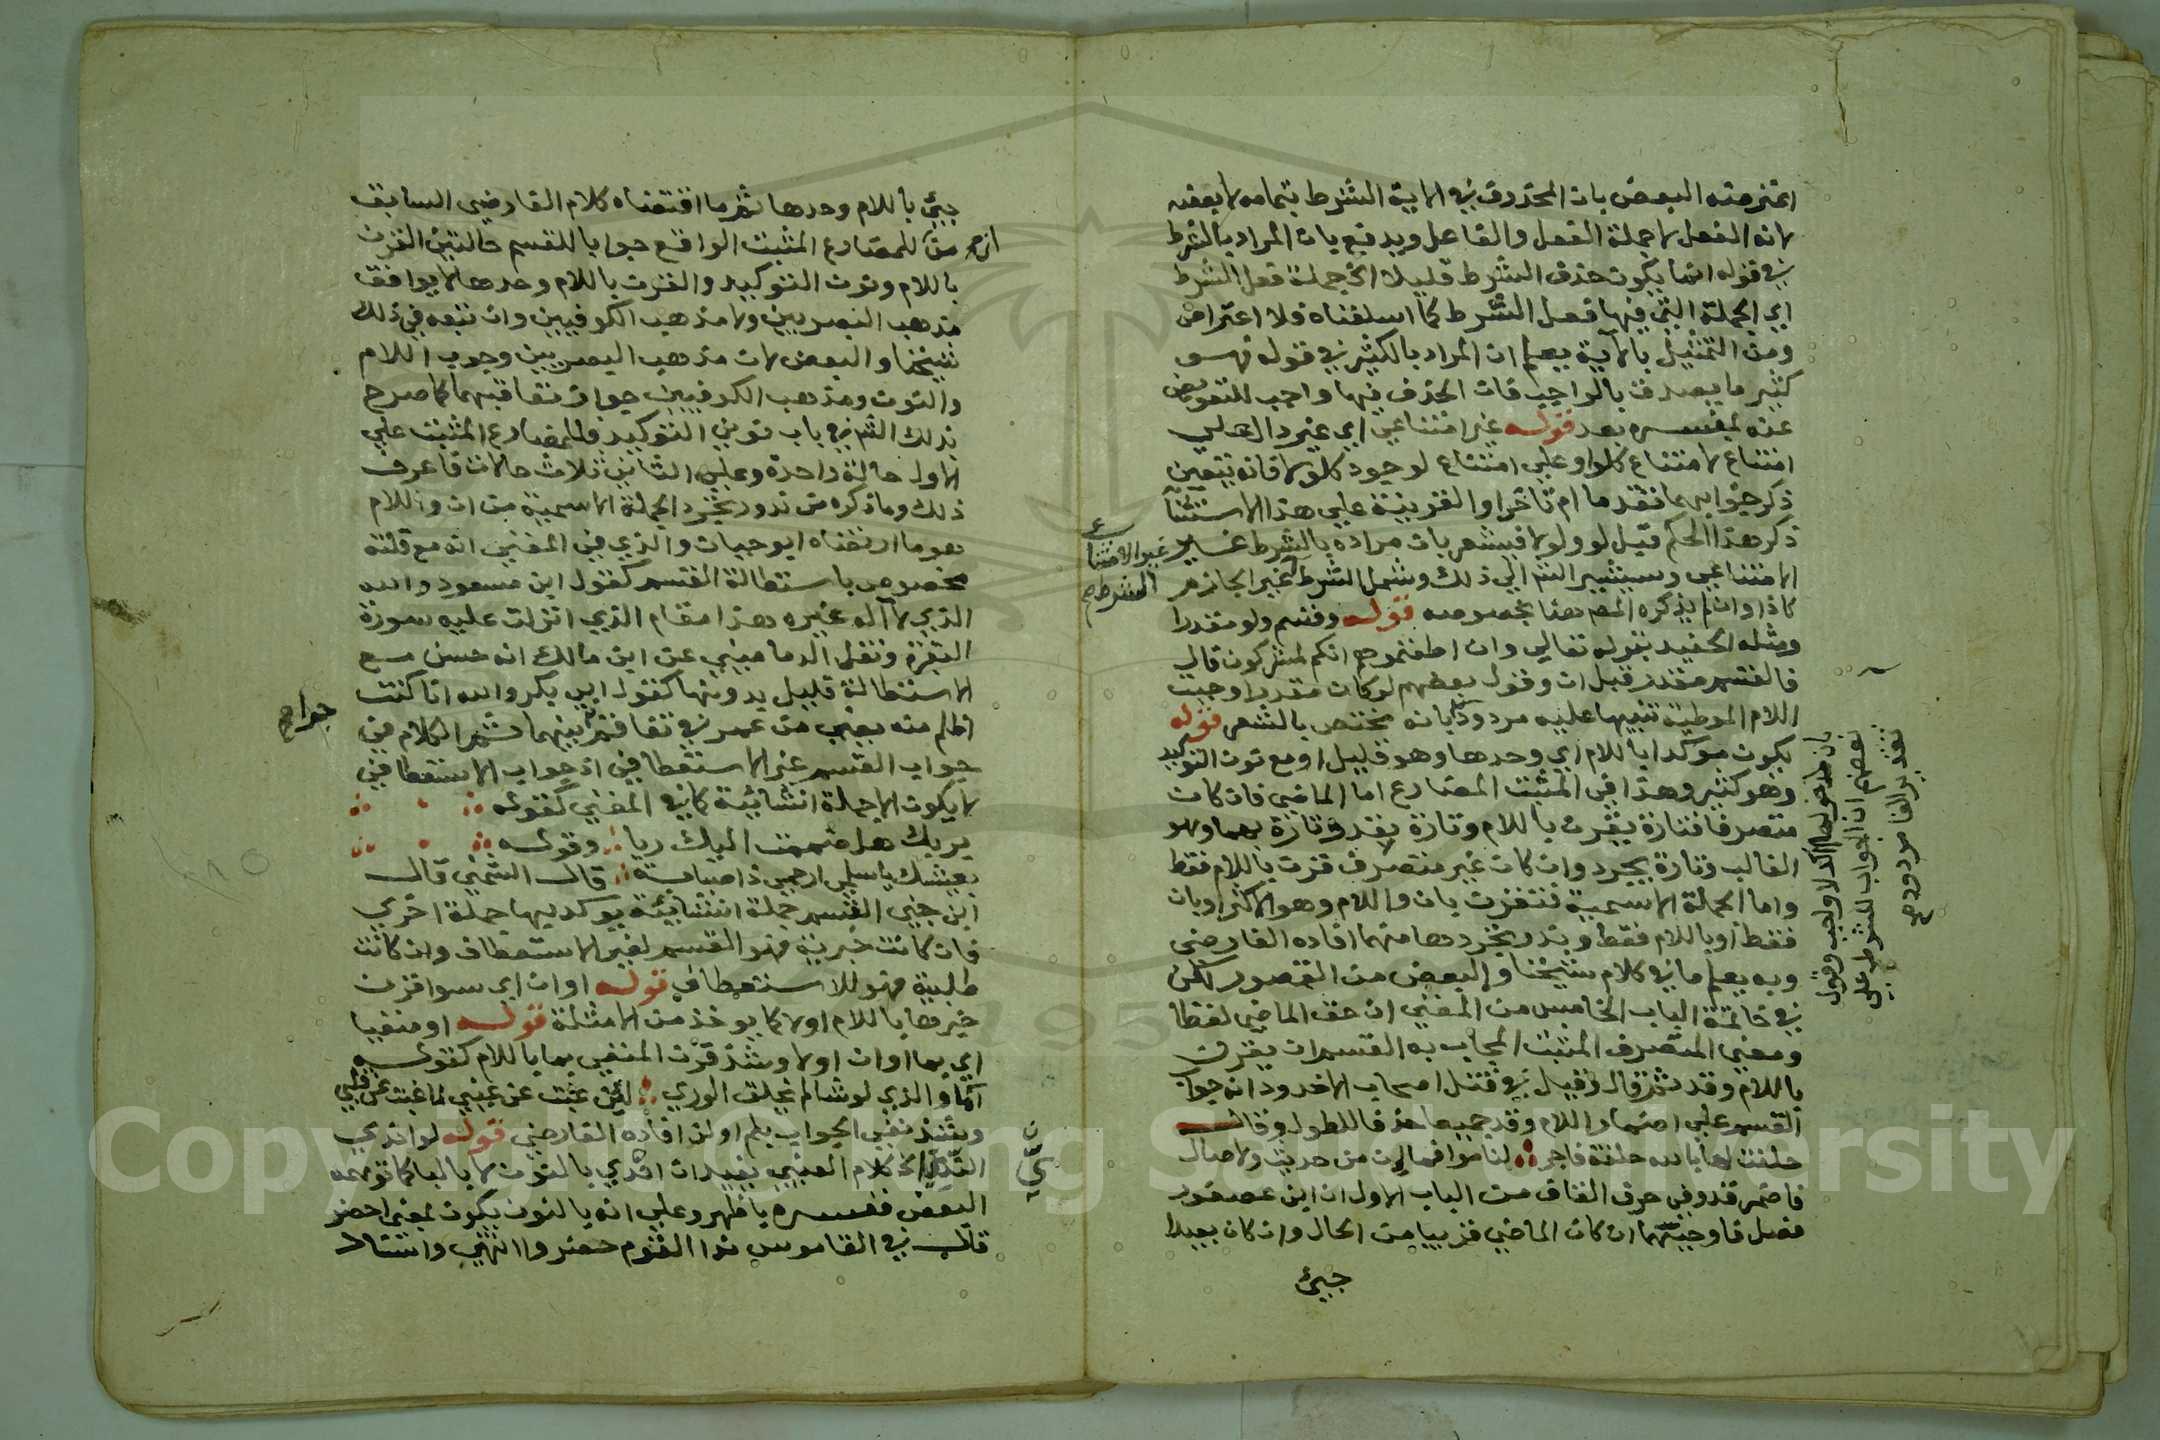 اعترضه البعض بان المحذوف في الاية الشرط بتمامه لا بعضه
لانه الفعل لا جملة الفعل والفاعل ويدفع بان المراد بالشرط
في قوله انما يكون حذف الشرط قليلا الخ جملة فعل الشرط
اي الجملة التي فيها فعل الشرط كما اسلفناه فلا اعتراض
ومن التمثيل بالاية يعلم ان المراد بالكثير في قوله فهو
كثير ما يصدق بالواجب فان الحذف فيها واجب للتعويض
عنه بمفسره بعد قوله غير امتناعي اي غير دال على
امتناع لامتناع كلو او على امتناع لوجود كلولا فانه يتعين
ذكر جوابهما تقدما ام تاخرا والقرينة على هذا الاستثنا
ذكر هذا الحكم قبل لو ولولا فيشعر بان مراده بالشرط غير
الامتناعي وسيشير الش الى ذلك وشمل الشرط غير الجازم
كاذا وان لم يذكره المص هنا بخصوصه قوله وقسم ولو مقدرا
ومثله الحفيد بقوله تعالي وان اطعتموهم انكم لمشركون قال
فالقسم مقدر قبل ان وقول بعضهم لو كان مقدرا وجبت
اللام الموطية تنبيها عليه مردود بانه مختص بالشعر قوله
يكون موكدا باللام اي وحدها وهو قليل او مع نون التوكيد
وهو كثير وهذا في المثبت المضارع اما الماضي فان كان
متصرفا فتارة يقرن باللام وتارة بقد وتارة بهما وهو
الغالب وتارة يجرد وان كان غير متصرف قرن باللام فقط
واما الجملة الاسمية فتقترن بان واللام وهو الاكثر او بان
فقط او باللام فقط ويندر تجردها منهما افاده الفارضي
وبه يعلم ما في كلام شيخنا والبعض من القصور لكن
في خاتمة الباب الخامس من المغني ان حق الماضي لفظا
ومعني المتصرف المثبت المجاب به القسم ان يقرن
باللام وقد ثم قال وقيل في قتل اصحاب الاخدود انه جواب
القسم على اضمار اللام وقد جميعا حذفا للطول وقال
حلفت لها بالله حلفة فاجر لناموا فما ان من حديث ولا صال
فاضمر قد وفي حرف القاف من الباب الاول ان ابن عصفور
فصل فاوجبهما ان كان الماضي قريبا من الحال وان كان بعيدا
جيئ
غير الامتناع
الشرط صح
بعضهم ان الجواب للشرط على
تقدير الفا مردود صح
جيئ باللام وحدها ثم ما اقتضاه كلام الفارضي السابق
من ان للمضارع المثبت الواقع جوابا للقسم حالتين القرن
باللام ونون التوكيد والقرن باللام وحدها لا يوافق
مذهب البصريين ولا مذهب الكوفيين وان تبعه في ذلك
شيخنا والبعض لان مذهب البصريين وجوب اللام
والنون ومذهب الكوفيين جواز تعاقبهما كما صرح
بذلك الش في باب نوني التوكيد فللمضارع المثبت علي
الاول حالة واحدة وعلى الثاني ثلاث حالات فاعرف
ذلك وما ذكره من ندور تجرد الجملة الاسمية من ان واللام
هو ما ارتضاه ابو حيان والذي في المغني انه مع قلته
مخصوص باستطالة القسم كقول ابن مسعود والله
الذي لا اله غيره هذا مقام الذي انزلت عليه سورة
البقرة ونقل الدماميني عن ابن مالك انه حسن مع
الاستطالة قليل بدونها كقول ابي بكر والله انا كنت
اظلم منه يعني من عمر في تقاقر بينهما ثم الكلام في
جواب القسم غير الاستعطافي اذ جواب الاستعطافي
لا يكون الا جملة انشائية كما في المغني كقوله
بربك هل ضممت اليك ريا وقوله
بعيشك يا سلمى ارحمي ذا صبابة قال الشمني قال
ابن جني القسم جملة انشائية يوكد بها جملة اخري
فان كانت خبرية فهو القسم لغير الاستعطاف وان كانت
طلبية فهو للاستعطاف قوله او ان اي سوا قرن
خبرها باللام او لا كما يوخذ من الامثلة قوله او منفيا
اي بما او ان او لا وشذ قرن المنفي بما باللام كقوله
اما والذي لو شا لم يخلق الوري لئن غبت عن عيني لما غبت عن قلبي
ويشذ نفي الجواب بلم او لن افاده الفارضي قوله لو اندي
الندي الخ كلام العيني يفيد ان اندي بالنون لا بالبا كما توهمه
البعض ففسره باظهر وعلى انه بالنون يكون بمعنى احضر
قال في القاموس ندا القوم حضروا انتهي وانشاد
جواب صح